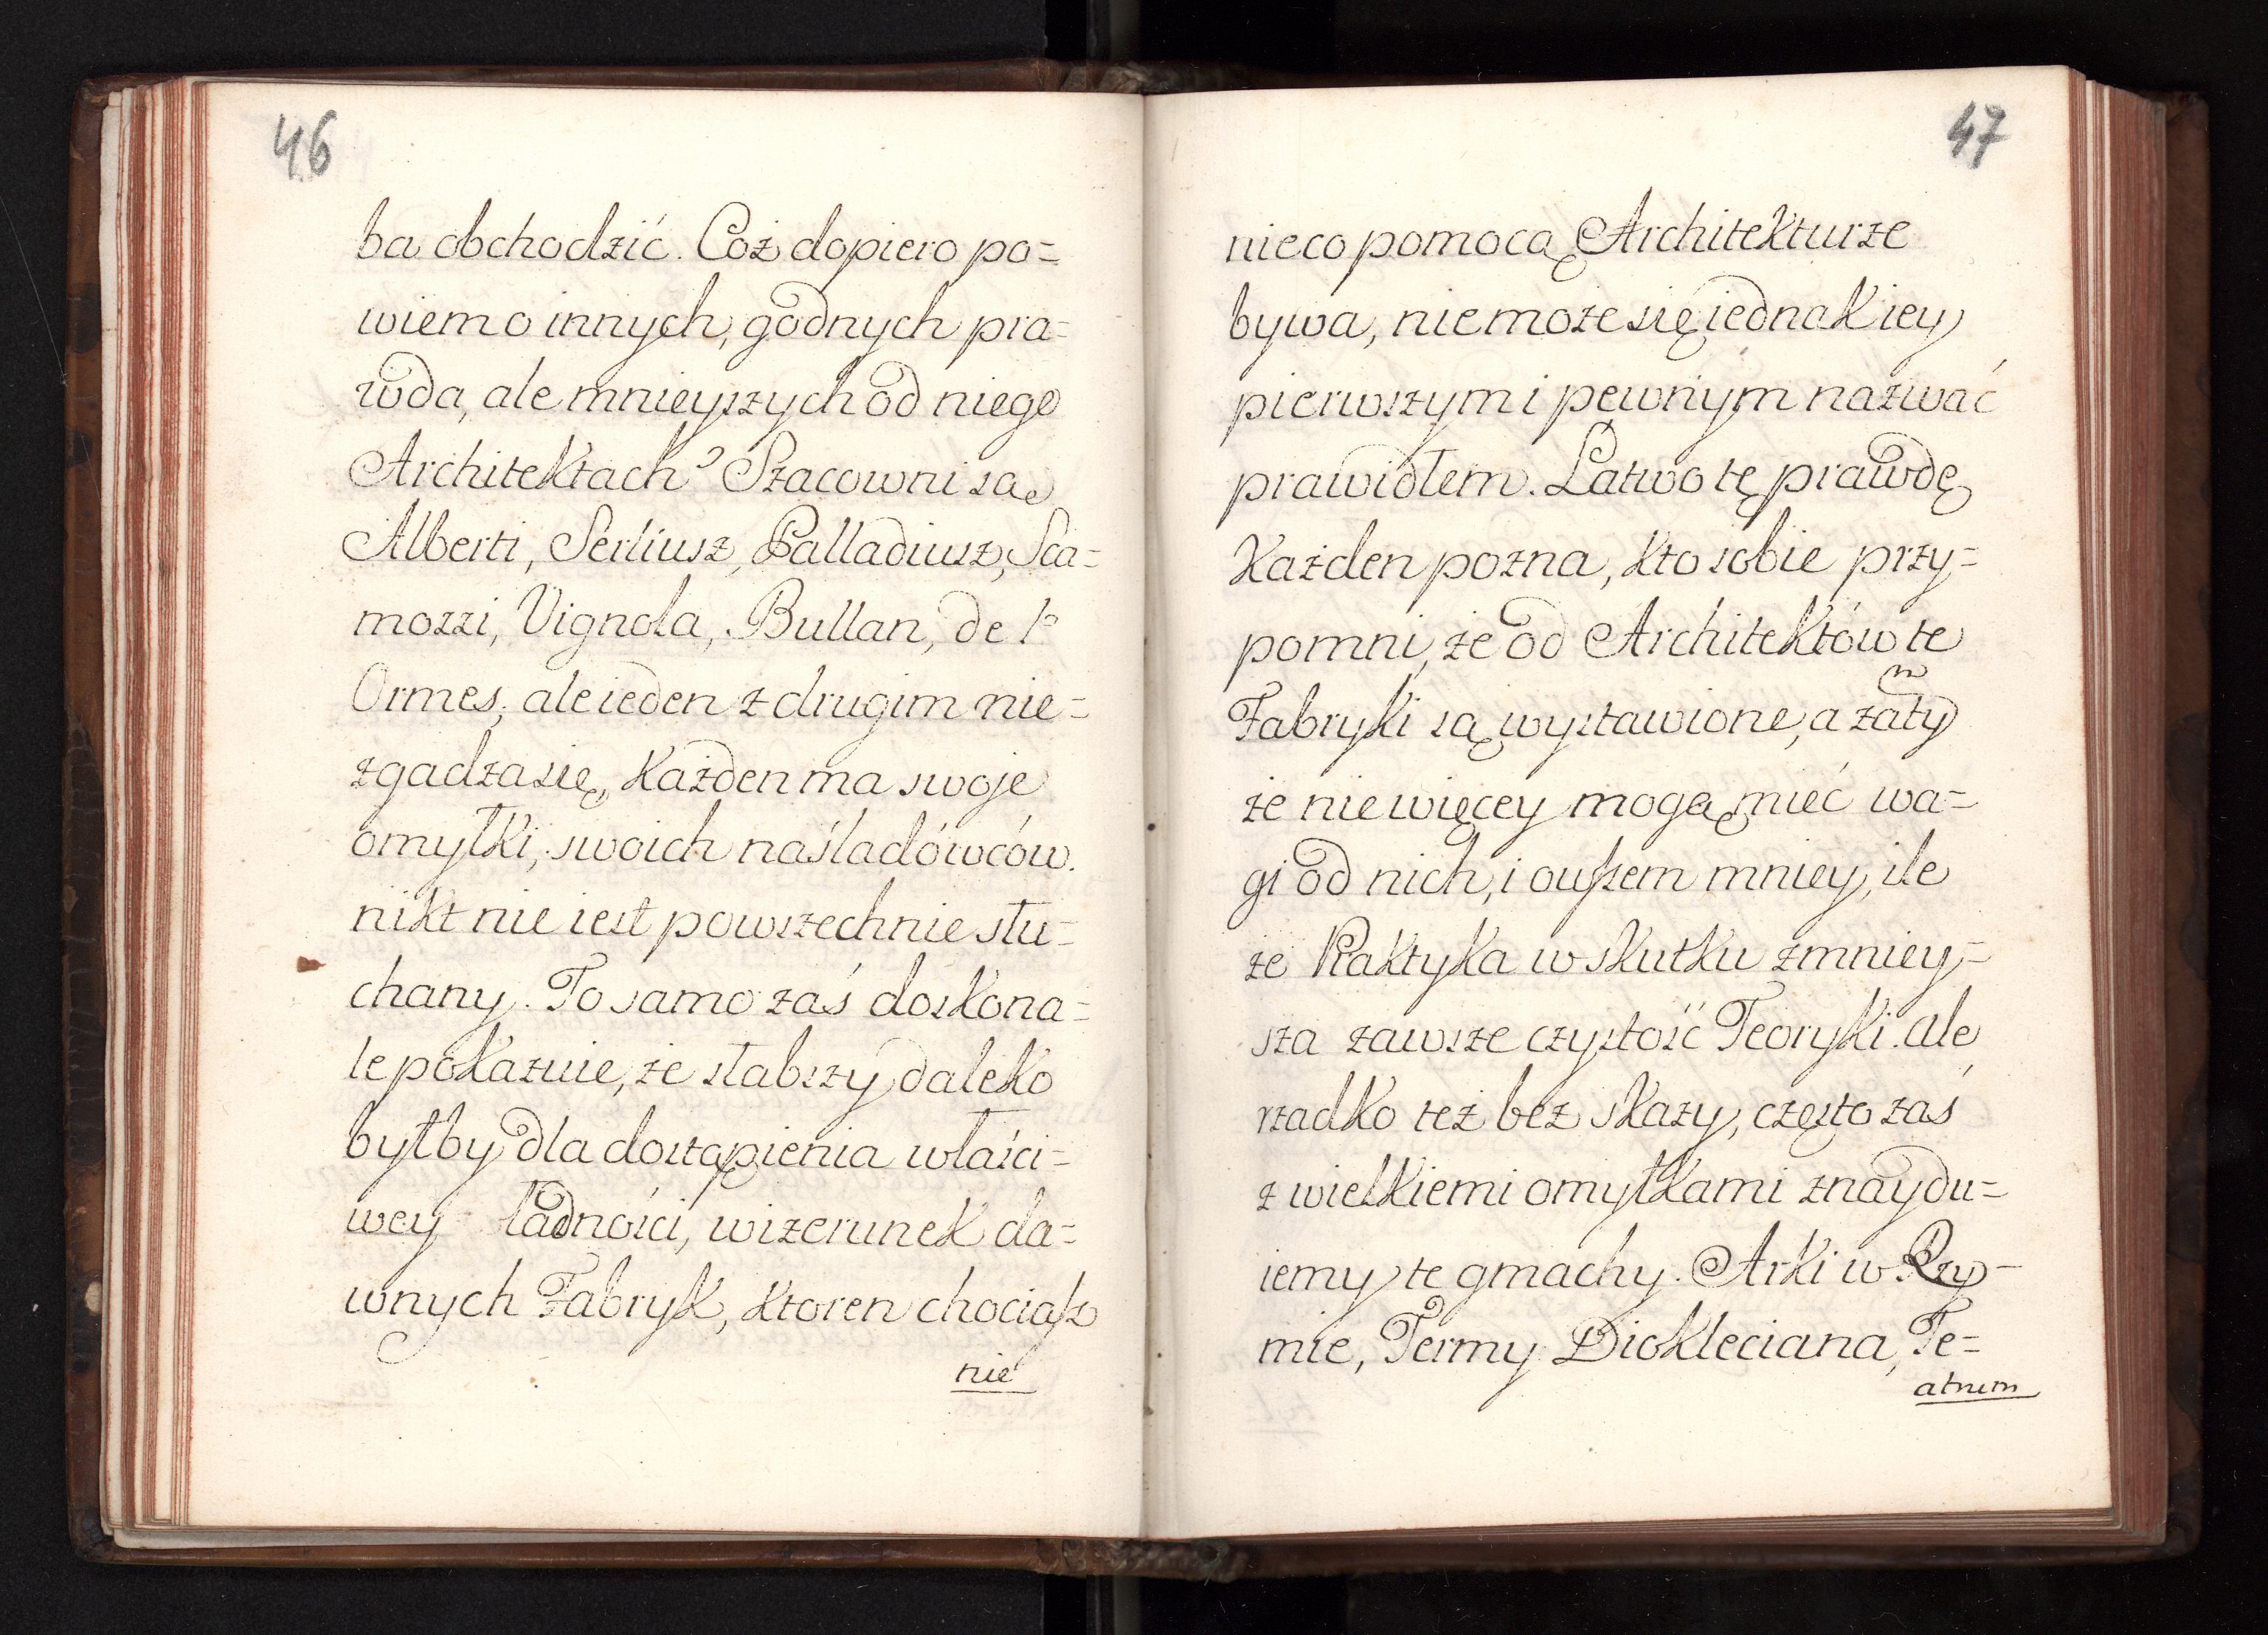 46
ba obchodzić. Coż dopiero po=
wiem o innych, godnych pra=
wda, ale mnieyszych od niego
Architektach? Szacowni są
Alberti, Serliusz, Palladiusz, Sca=
mozzi, Vignola, Bullan, de l'
Ormes, ale ieden z drugim nie=
zgadza się, Każden ma swoje
omyłki, swoich naśladówców.
nikt nie iest powszechnie słu=
chany. To samo zaś doskona=
le pokazuie, że słabszy daleko
byłby dla dostąpienia właści=
wey ładności, wizerunek da=
wnych Fabryk, ktoren chociasz
nie
47
nieco pomocą Architekturze
bywa, nie może się iednak iey
pierwszym i pewnym nazwać
prawidłem. Łatwo tę prawdę
Każden pozna, kto sobie przy=
pomni, że od Architektów te
Fabryki są wystawione, a zatym
że nie więcey mogą mieć wa=
gi od nich, i ouszem mniey, ile
że Praktyka w skutku zmniey=
sza zawsze czystość Teoryki. ale
rzadko też bez skazy, często zaś
z wielkiemi omyłkami znaydu=
iemy te gmachy. Arki w Rzy=
mie, Termy Diokleciana, Te=
atrum